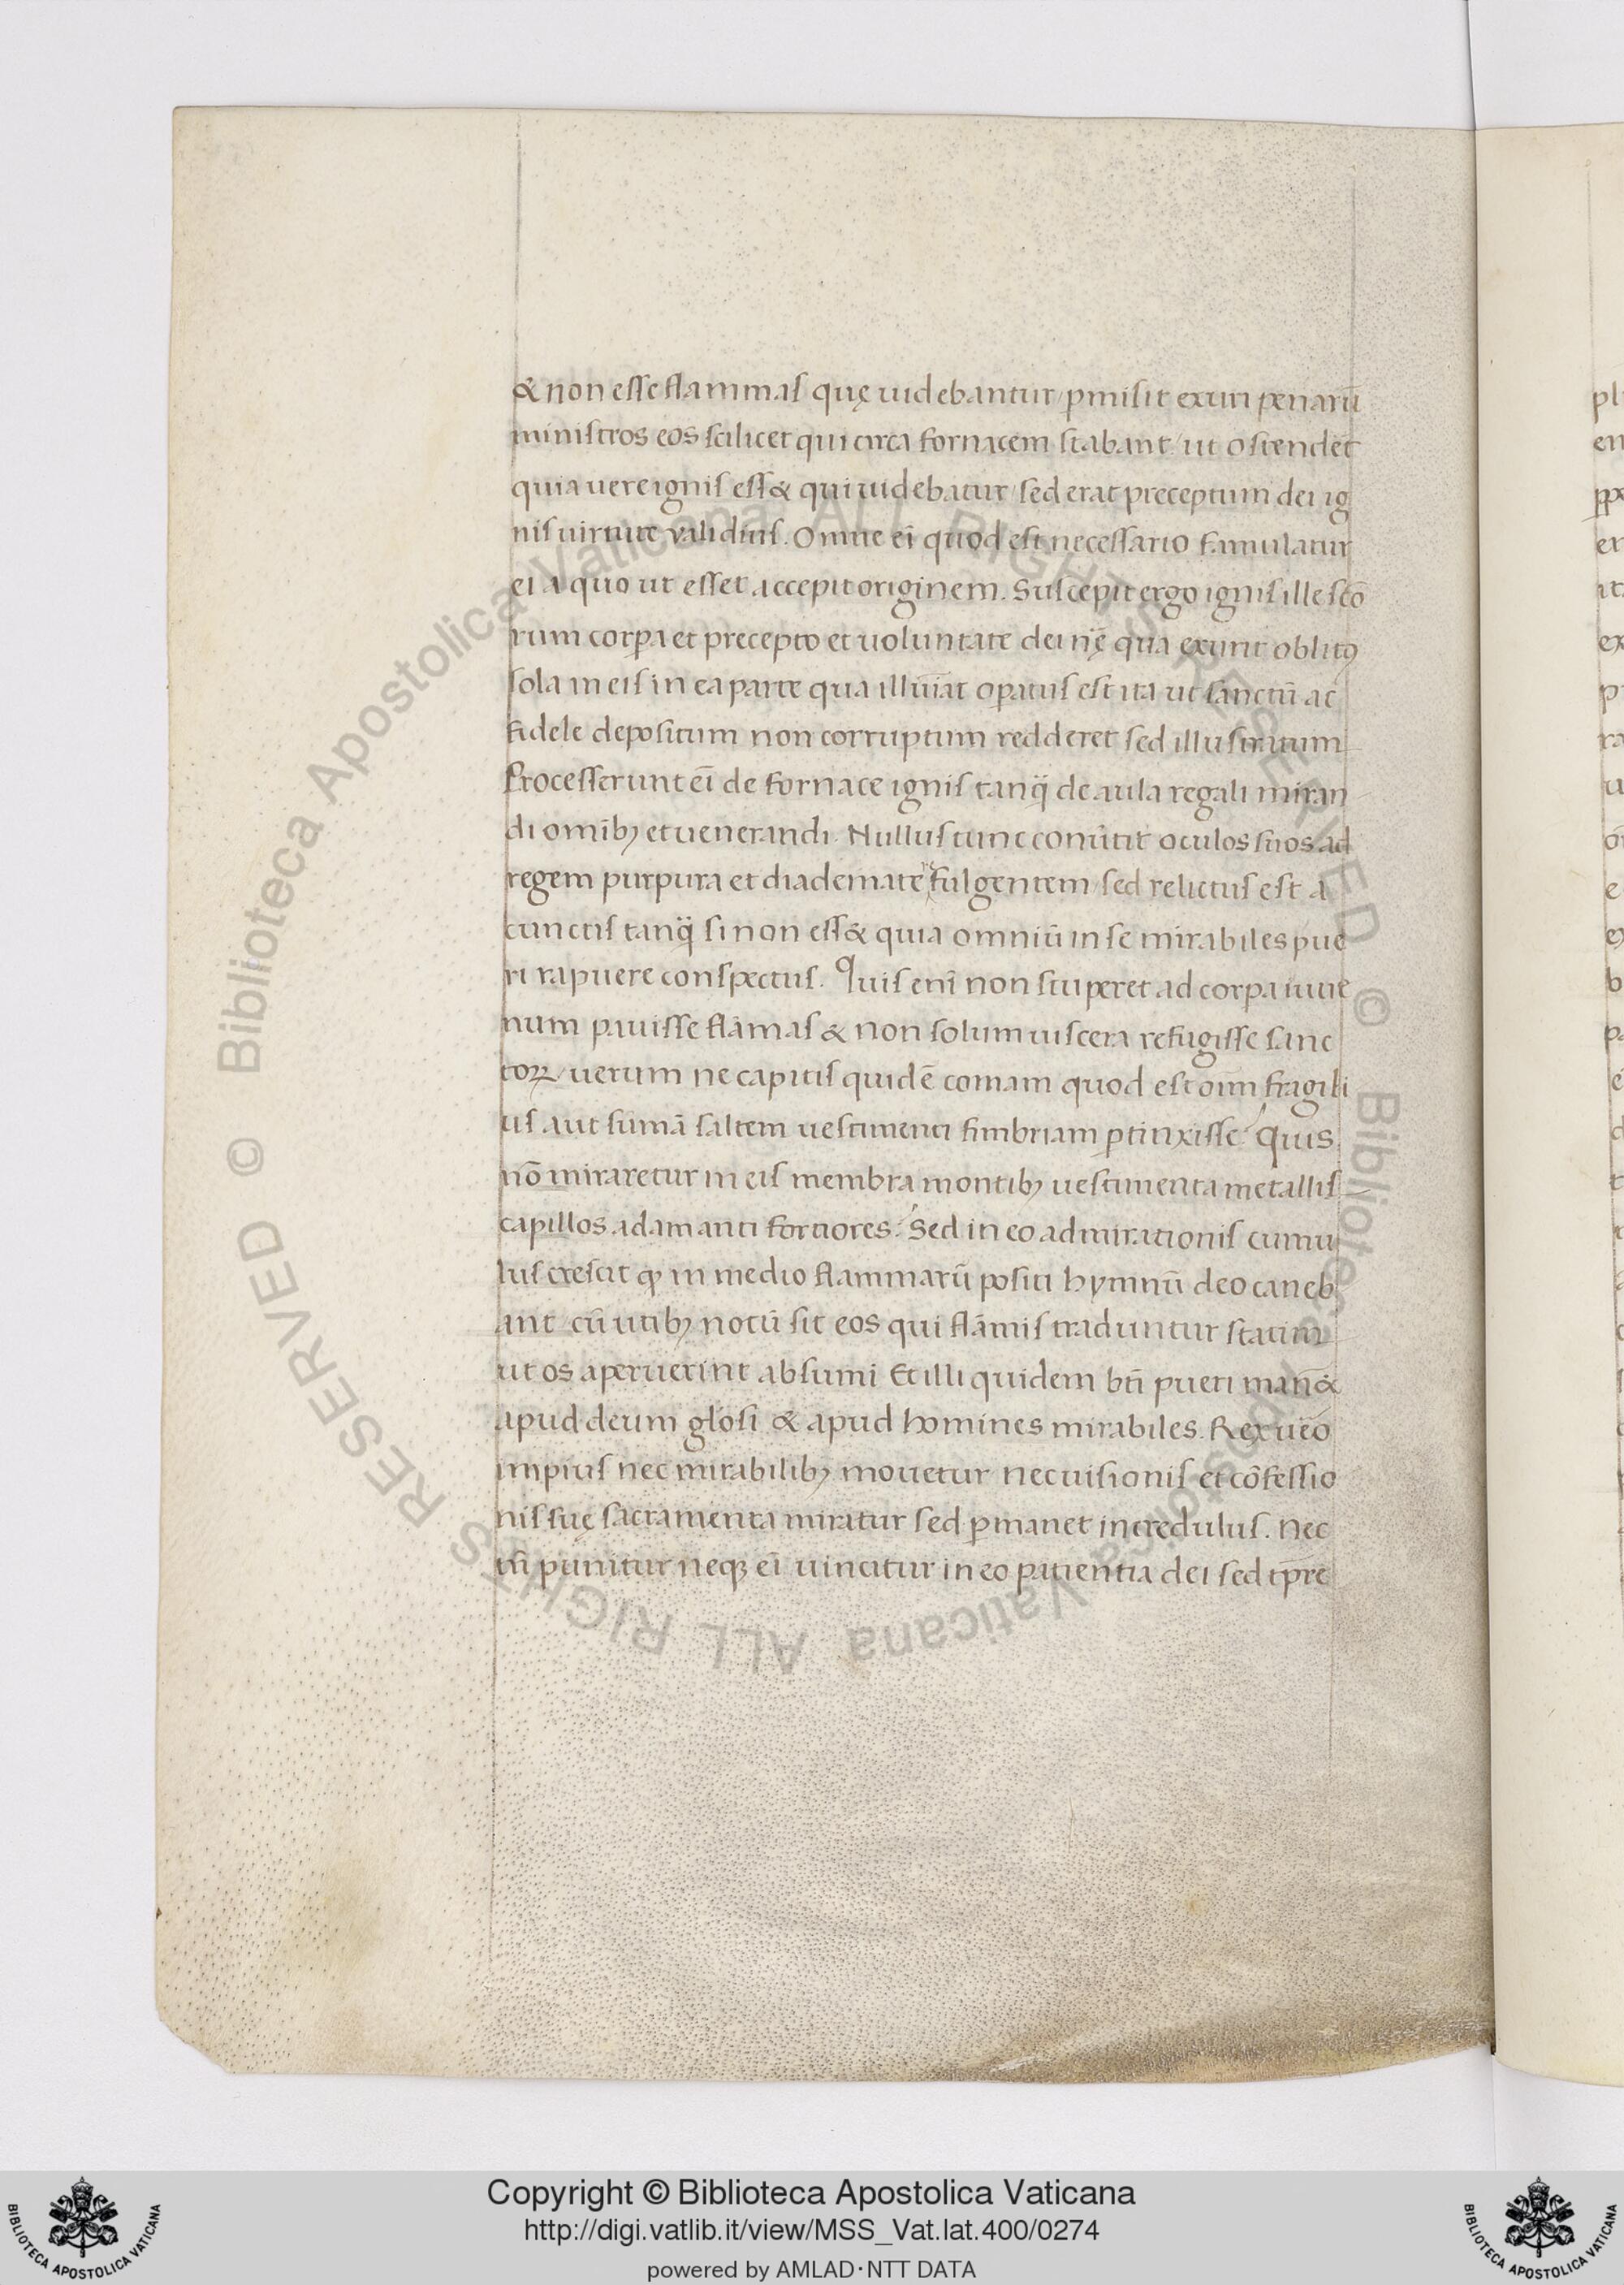 & non esse flammas quę uidebantur / p̱misit exuri penarū
ministros eos scilicet qui circa fornacem stabant / ut ostenderet
quia uere ignis ess& qui uidebatur / sed erat preceptum dei ig
nis uirtute validius. Omne ei̅ quod est necessario famulatur
ei a quo ut esset accepit originem. Suscepit ergo ignis ille sc̅o
rum corp̱a et precepto et uoluntate dei nę̅ qua exurit oblitꝰ
sola in eis in ea parte qua illuīat op̱atus est ita ut sanctū ac
fidele depositum non corruptum redderet sed illustratum
Processerunt ei̅ de fornace ignis tanq̈ de aula regali miran
di omībꝫ et uenerandi. Nullus tunc conūtit oculos suos ad
regem purpura et diademate fulgentem / sed relictus est a
cunctis tanq̈ si non ess& quia omniū in se mirabiles pue
ri rapuere conspectus. Quis enī non stuperet ad corp̱a iuue
num pauisse flāmas & non solum uiscera refugisse sanc
toꝝ / uerum ne capitis quidē comam quod est oīm fragili
us aut sumā saltem uestimenti fimbriam p̱tinxisse? Quis
nō miraretur in eis membra montibꝫ uestimenta metallis
capillos adamanti fortiores? Sed in eo admirationis cumu
lus crescit ꝙ in medio flammarū positi hymnū deo caneb
ant cū utibꝫ notū sit eos qui flāmis traduntur statim
ut os aperuerint absumi Et illi quidem bt̅i pueri man̅&
apud deum glo̅si & apud homines mirabiles. Rex ue̅o
impius nec mirabilibꝫ mouetur nec uisionis et cōfessio
nis suę sacramenta miratur sed p̱manet incredulus. Nec
tn̅ punitur neqꝫ ei̅ uincitur in eo patientia dei sed tp̅re
Copyright © Biblioteca Apostolica Vaticana
http://digi.vatlib.it/view/MSS_Vat.lat.400/0274
powered by AMLAD·NTT DATA